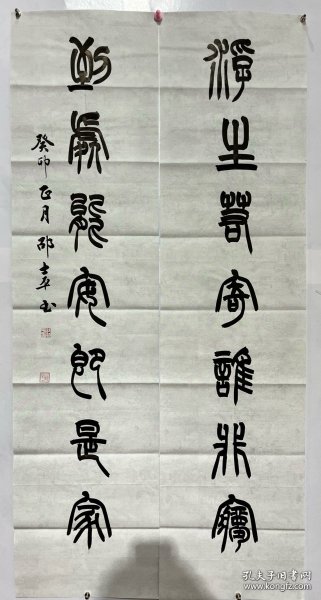 浮生若寄誰非夢
到處能安即是家
癸卯正月邵
孔夫子旧书网